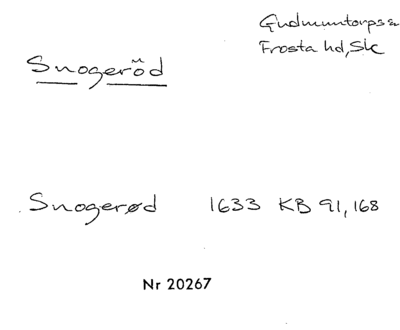 Gudmuntorps sn
Frosta hd, Sk
Snogeröd
Snogerød 1633 KB 91, 168
Nr 20267